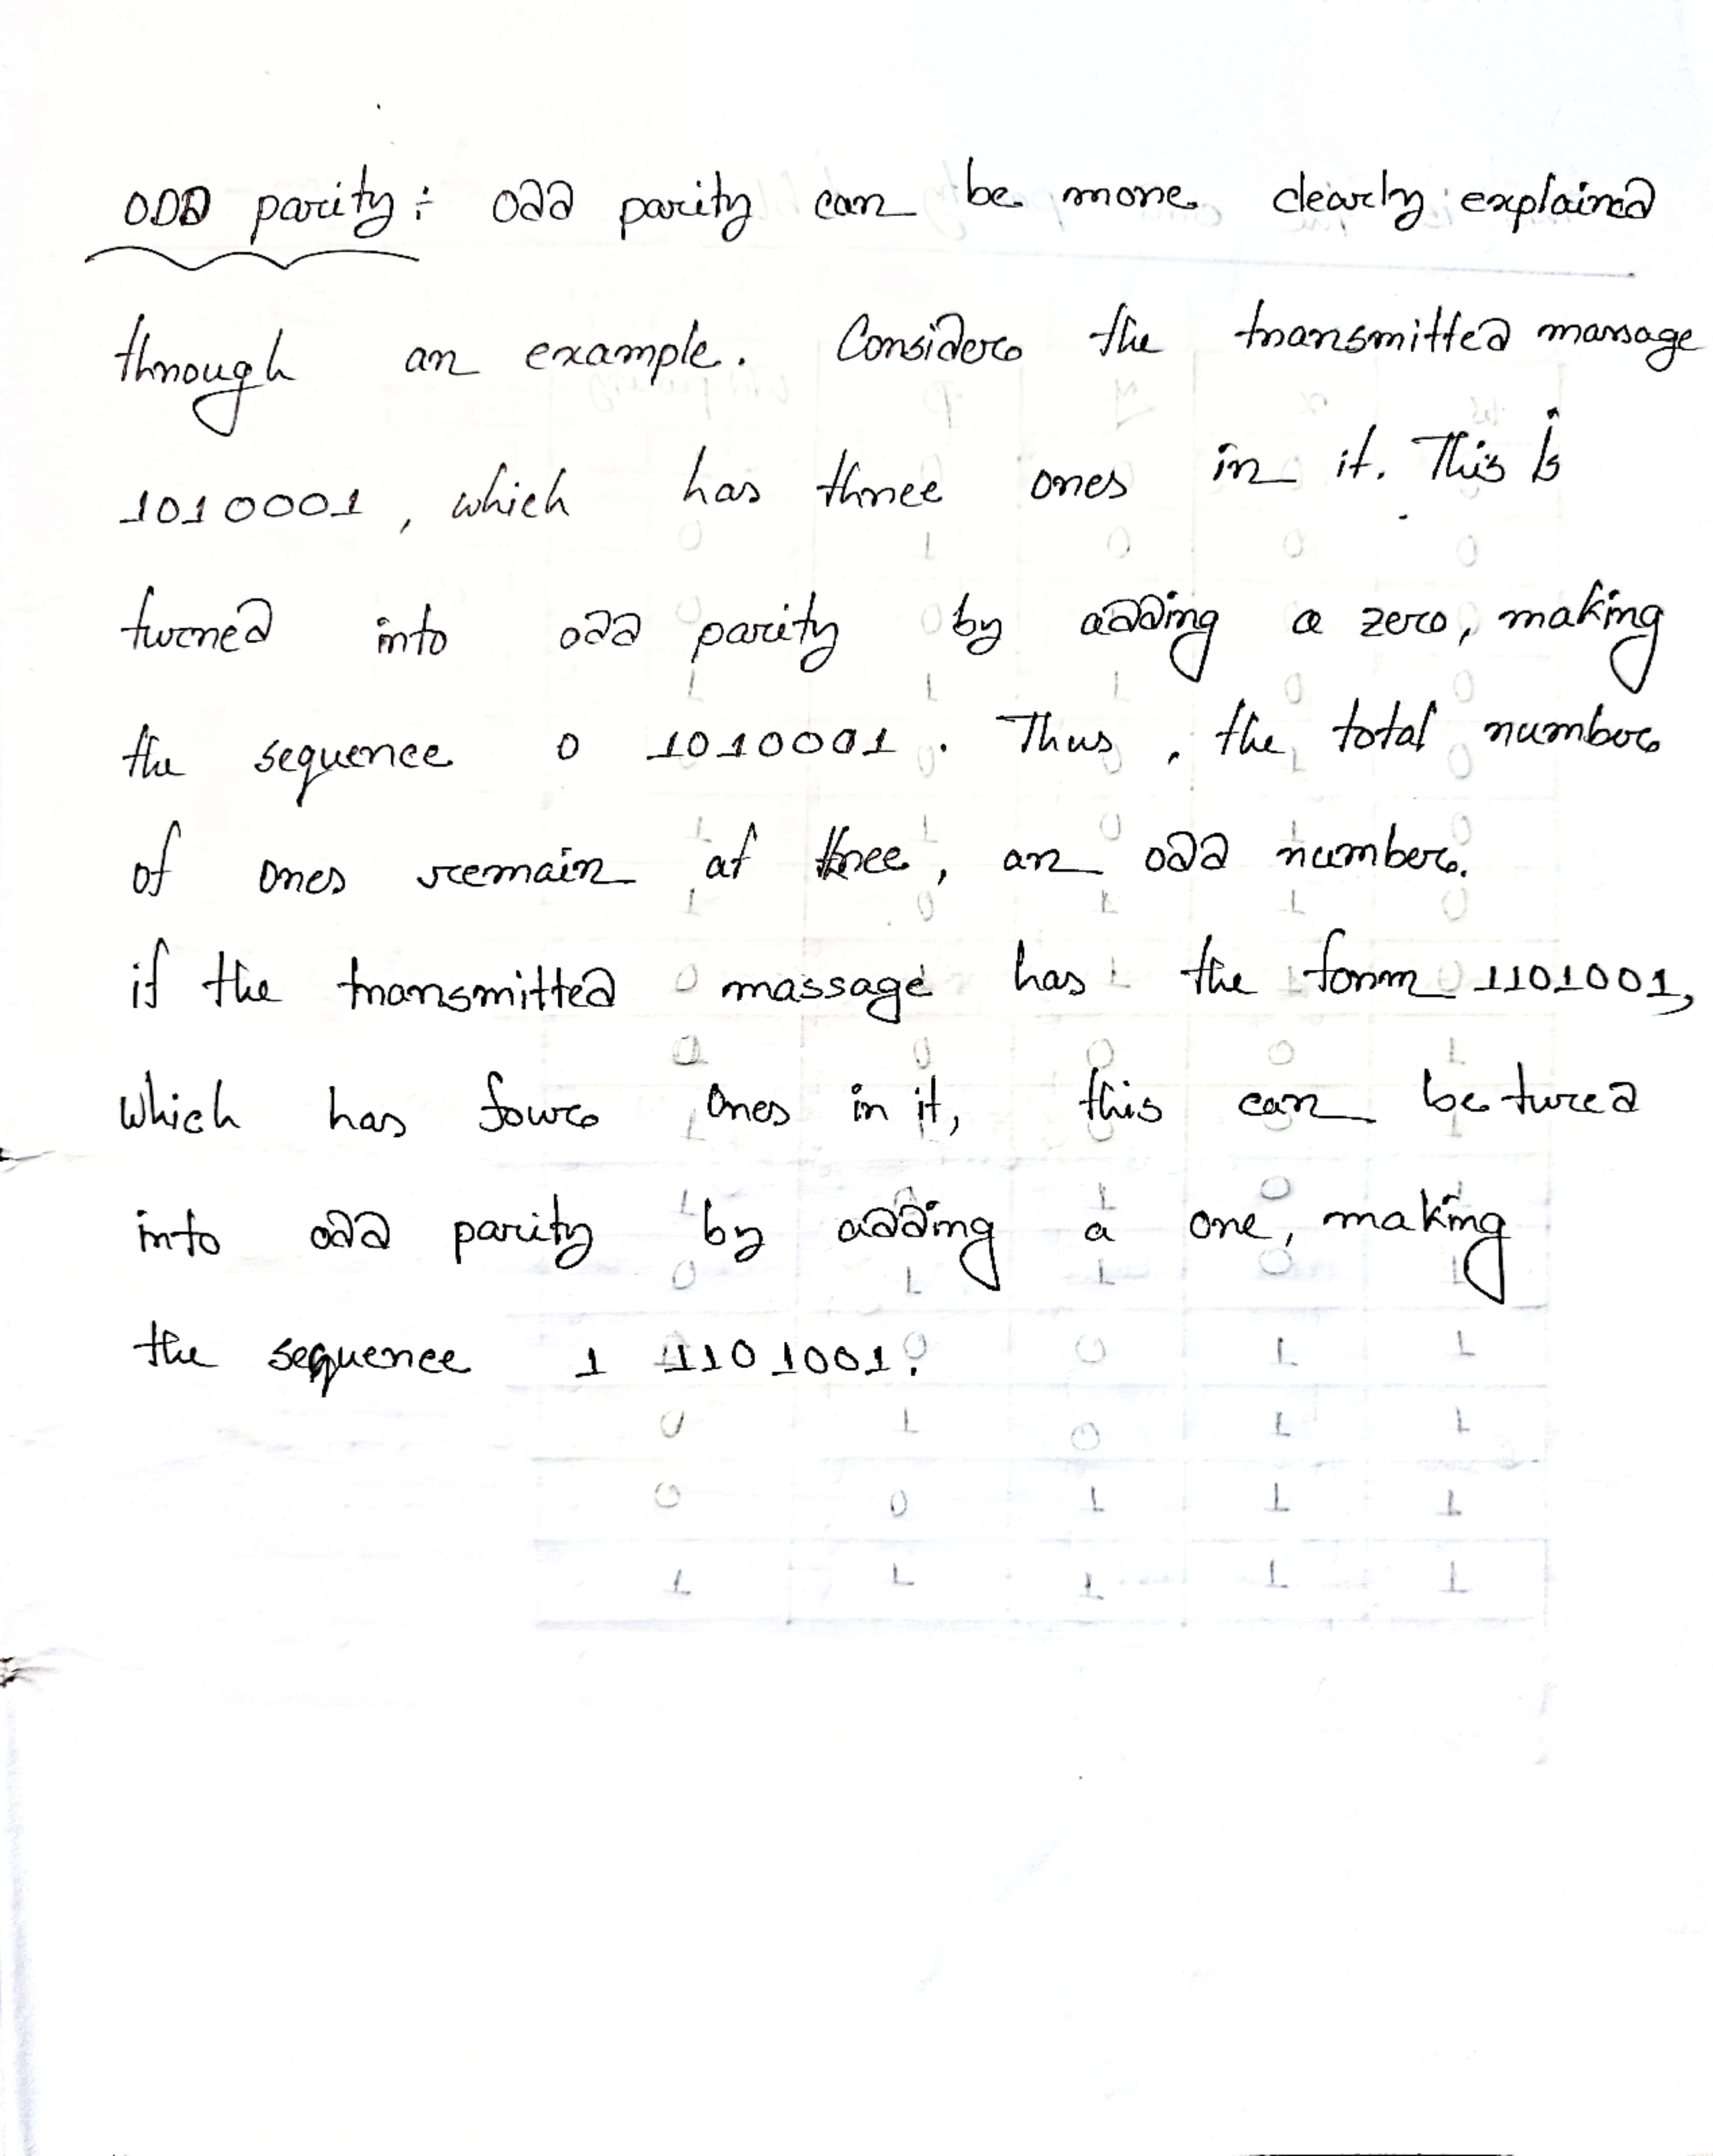 ODD parity: odd parity can be more clearly explained
through an example. Consider the transmitted massage
1010001, which has three ones in it. This is
turned into odd parity by adding a zero, making
the sequence 0 1010001. Thus, the total number
of ones remain at three, an odd number.
if the transmitted massage has the form 1101001,
which has four ones in it, this can be tured
into odd parity by adding a one, making
the sequence 1 1101001.